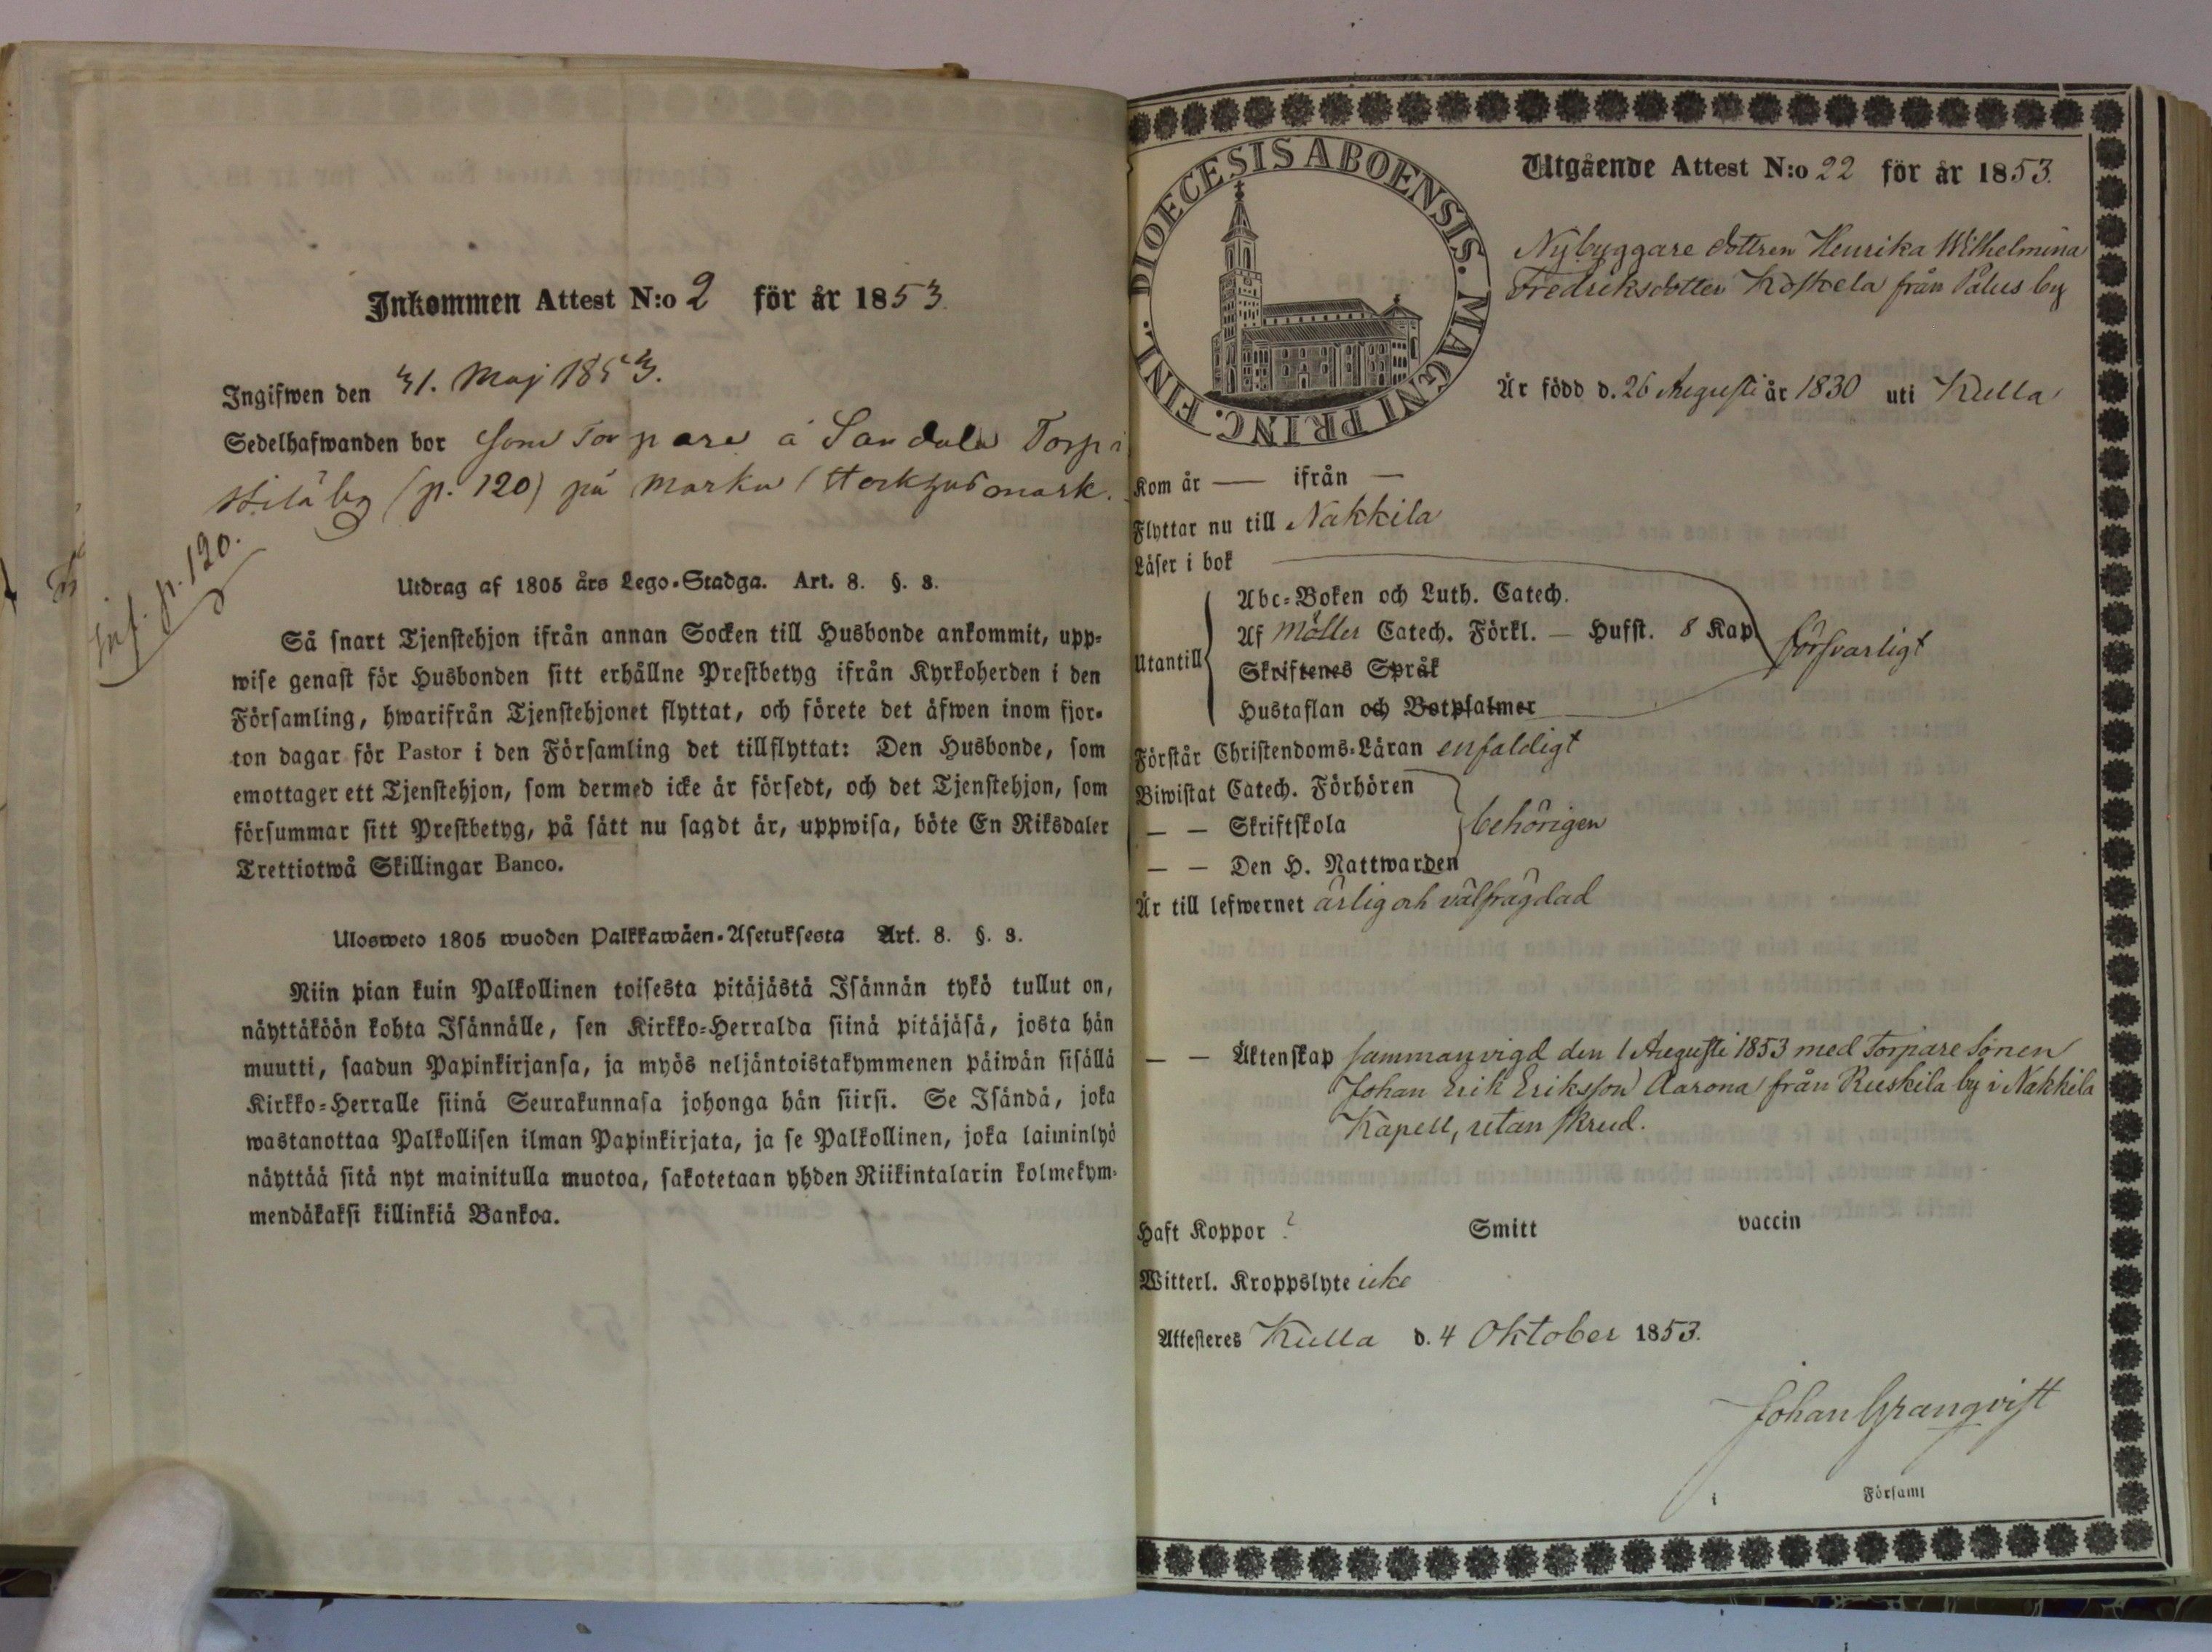 Inkommen Attest N:o 2 för år 1853.
Ingifwen den 31. Maj 1853.
Sedelhafwanden bor som Torpare å Sandala Torp i
by (p. 120) på Marku mark.
Inf. p. 120.
Utdrag af 1805 års Lego-Stadga. Art. 8. §. 8.
Så snart Tjenstehjon ifrån annan Socken till Husbonde ankommit, upp-
wise genast för Husbonden sitt erhållne Prestbetyg ifrån Kyrkoherden i den
Församling, hwarifrån Tjenstehjonet flyttat, och förete det äfwen inom fjor-
ton dagar för Pastor i den Församling det tillflyttat: Den Husbonde, som
emottager ett Tjenstehjon, som dermed icke är försedt, och det Tjenstehjon, som
försummar sitt Prestbetyg, på sätt nu sagdt är, uppwisa, böte En Riksdaler
Trettiotwå Skillingar Banco.
Ulosweto 1805 wuoden Palkkawäen-Asetuksesta Art. 8. §. 8.
Niin pian kuin Palkollinen toisesta pitäjästä Isännän tykö tullut on,
näyttäköön kohta Isännälle, sen Kirkko-Herralda siinä pitäjäsä, josta hän
muutti, saadun Papinkirjansa, ja myös neljäntoistakymmenen päiwän sisällä
Kirkko-Herralle siinä Seurakunnasa johonga hän siirsi. Se Isändä, joka
wastanottaa Palkollisen ilman Papinkirjata, ja se Palkollinen, joka laiminlyö
näyttää sitä nyt mainitulla muotoa, sakotetaan yhden Riikintalarin kolmekym-
mendäkaksi killinkiä Bankoa.
DIOECESIS ABOENSIS. MAGNI PRINC. FINL.
Utgående Attest N:o 22 för år 1853.
Nybyggare dottren Henrika Wilhelmina
Fredriksdotter Koskela från Palus by
Är född d. 26 Augusti år 1830 uti Kulla
Kom år — ifrån —
Flyttar nu till Nakkila
Läser i bok
Abc-Boken och Luth. Catech.
Af Möller Catech. Förkl. — Husst. 8 Kap
Utantill försvarligt
Skriftenes Språk
Hustaflan och Botpsalmer
Förstår Christendoms-Läran enfaldigt
Biwistat Catech. Förhören
— — Skriftskola behörigen
— — Den H. Nattwarden
Är till lefwernet ärlig och välfrägdad
— — Äktenskap sammanvigd den 1 Augusti 1853 med Torpare Sonen
Johan Erik Eriksson Aarona från Ruskila by i Nakkila
Kapell, utan skrud.
Haft Koppor ? Smitt vaccin
Witterl. Kroppslyte icke
Attesteres Kulla d. 4 Oktober 1853.
Johan Granqvist
i Församl